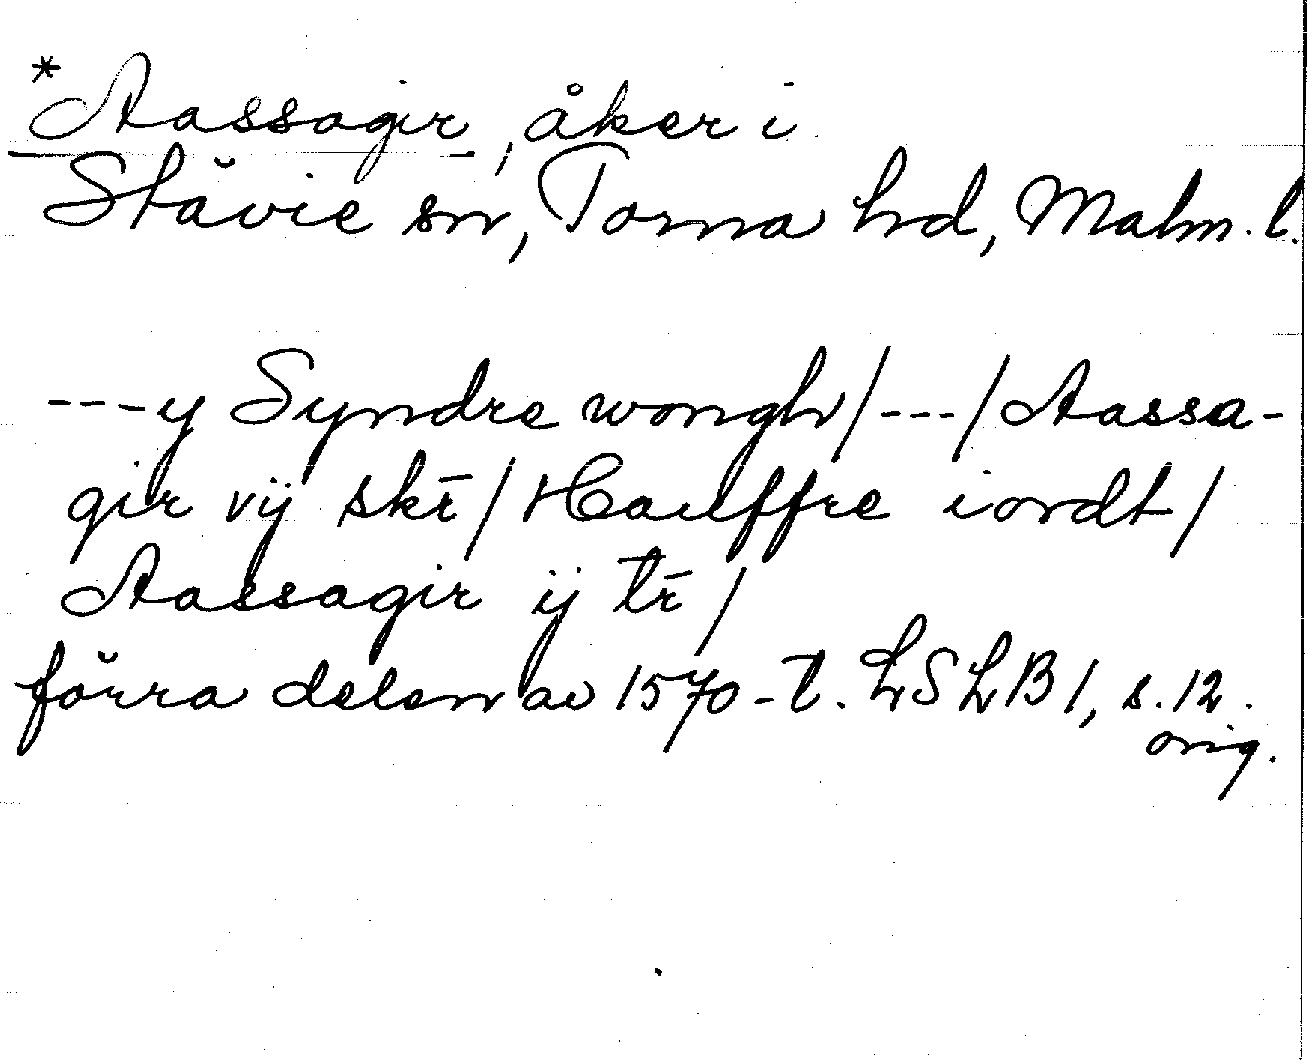 *Aassagir, åker i
Stävie sn, Torna hd, Malm. l.
---y Syndre wongh/---/Aassa-
gir vÿ skr̄/Hauffre iordt/
Aassagir ÿ tr̄/
förra delen av 1570-t. LSLB1, s. 12.
orig.